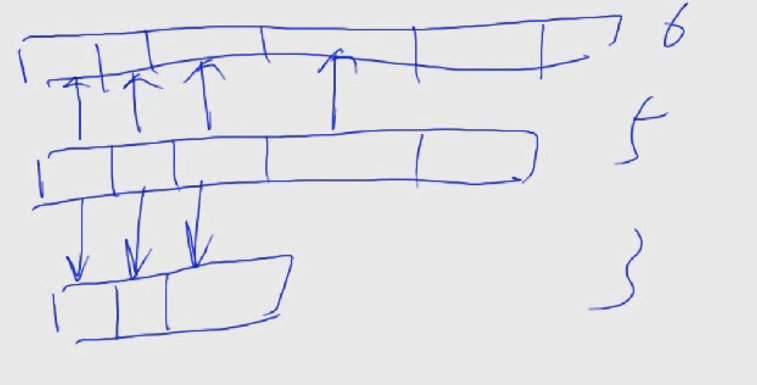 6
5
3